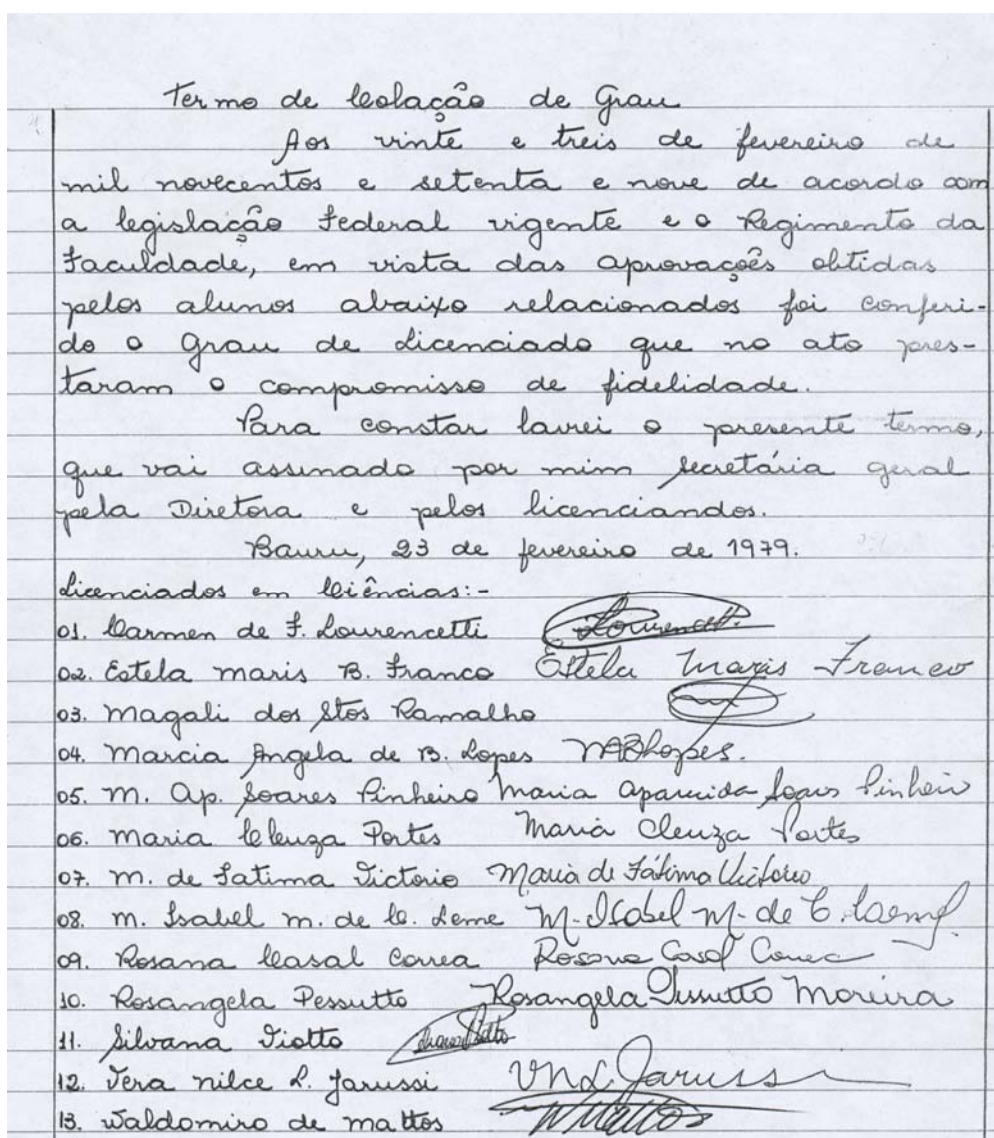 Termo de Colação de Grau
Aos vinte e treis de fevereiro de
mil novecentos e setenta e nove de acordo com
a legislação Federal vigente e o Regimento da
Faculdade, em vista das aprovações obtidas
pelos alunos abaixo relacionados foi conferi-
do o Grau de Licenciado que no ato pres-
taram o compromisso de fidelidade.
Para constar lavrei o presente termo,
que vai assinado por mim secretária geral
pela Diretora e pelos licenciandos.
Bauru, 23 de fevereiro de 1979.
Licenciados em Ciências:-
01. Carmen de F. Lourencetti Lourencetti
02. Estela Maris B. Franco Estela Maris Franco
03. Magali dos Stos Ramalho
04. Marcia Angela de B. Lopes MABLopes.
05. M. Ap. Soares Pinheiro Maria Aparecida Soares Pinheiro
06. Maria Cleuza Portes Maria Cleuza Portes
07. M. de Fatima Victorio Maria de Fátima Victorio
08. M. Isabel M. de C. Leme M. Isabel M. de C. Leme
09. Rosana Casal Correa Rosana Casal Correa
10. Rosangela Pessutto Rosangela Pessutto Moreira
11. Silvana Viotto
12. Vera Nilce L. Jarussi VNL Jarussi
13. Waldomiro de Mattos WMattos